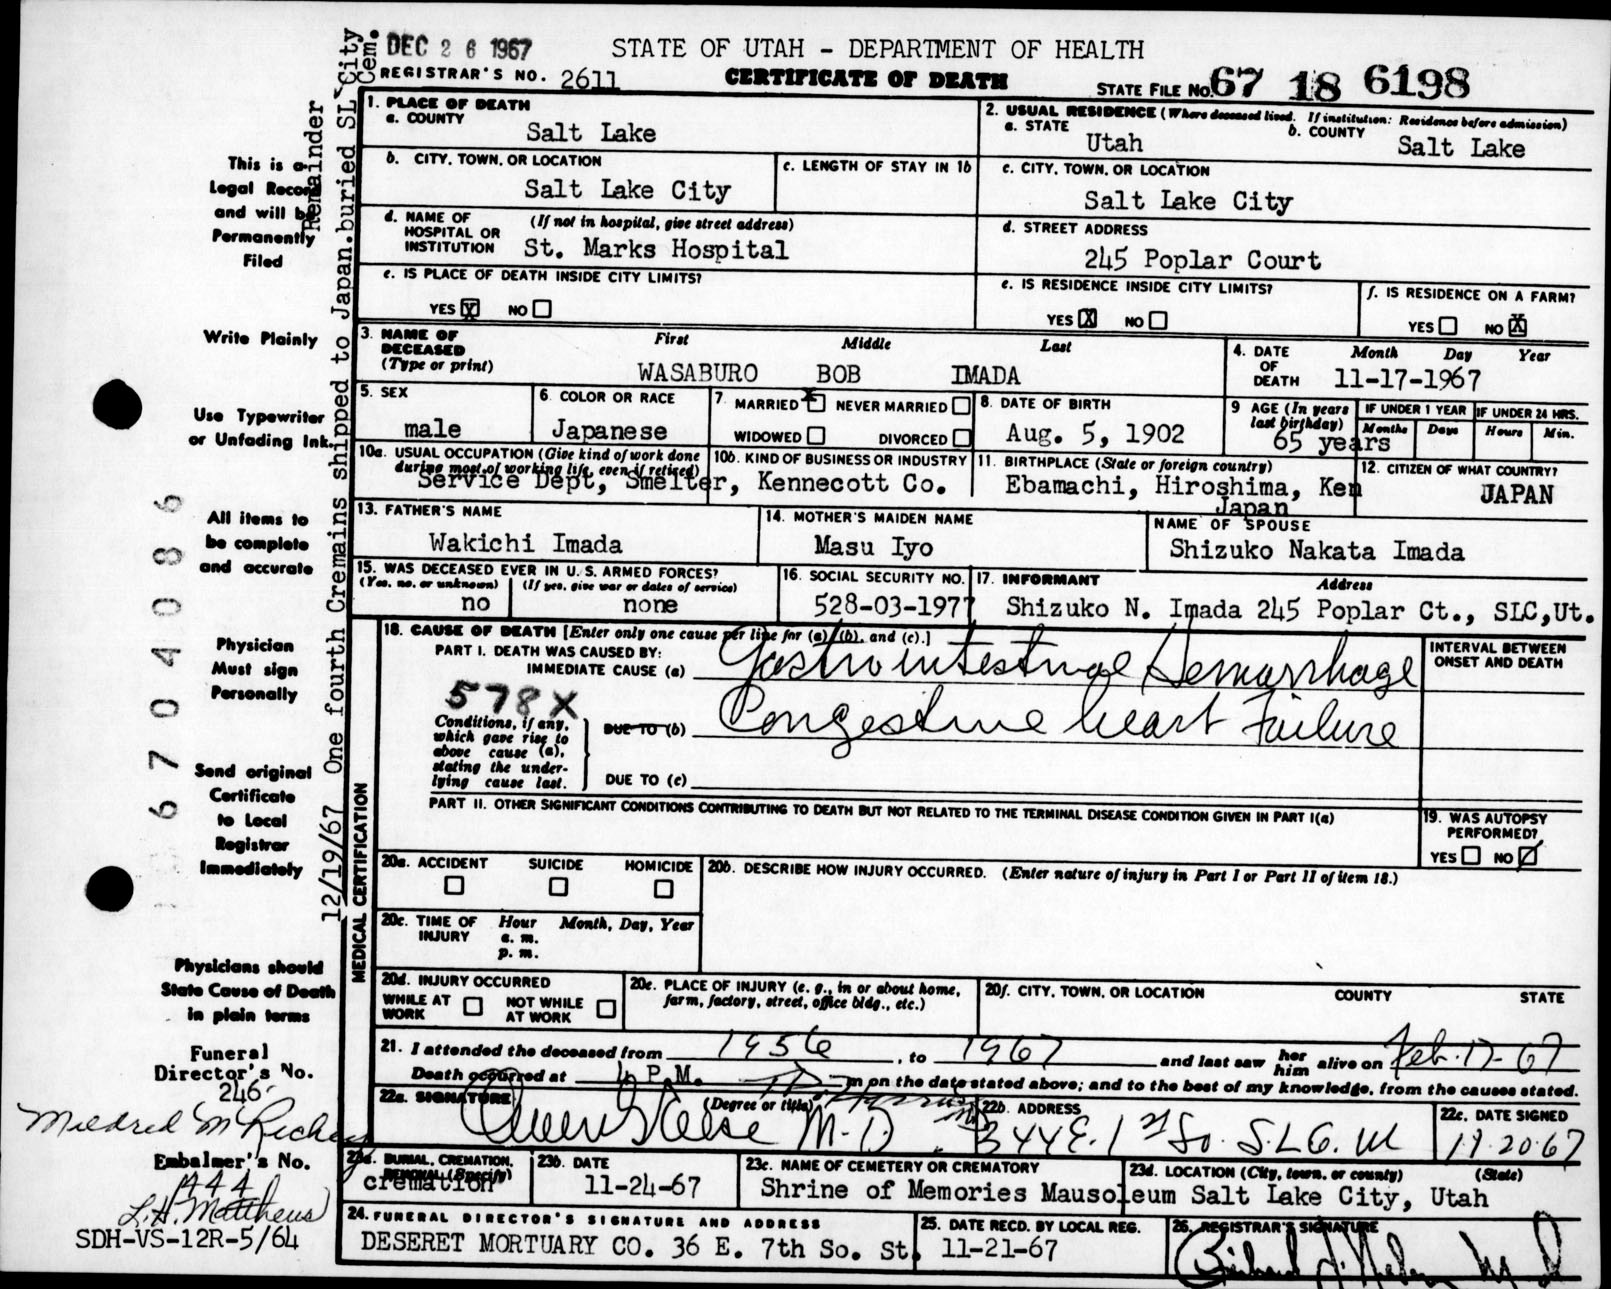 DEC 26 1967
STATE OF UTAH - DEPARTMENT OF HEALTH
REGISTRAR'S NO. 2611
CERTIFICATE OF DEATH
STATE FILE No. 67 18 6198
1. PLACE OF DEATH
a. COUNTY
Salt Lake
2. USUAL RESIDENCE (Where deceased lived. If institution: Residence before admission)
a. STATE
Utah
b. COUNTY
Salt Lake
b. CITY, TOWN, OR LOCATION
Salt Lake City
c. LENGTH OF STAY IN 1b
c. CITY, TOWN, OR LOCATION
Salt Lake City
d. NAME OF HOSPITAL OR INSTITUTION
(If not in hospital, give street address)
St. Marks Hospital
d. STREET ADDRESS
245 Poplar Court
e. IS PLACE OF DEATH INSIDE CITY LIMITS?
YES X NO
e. IS RESIDENCE INSIDE CITY LIMITS?
YES X NO
f. IS RESIDENCE ON A FARM?
YES NO X
3. NAME OF DECEASED
(Type or print)
First Middle Last
WASABURO BOB IMADA
4. DATE OF DEATH
Month Day Year
11-17-1967
5. SEX
male
6. COLOR OR RACE
Japanese
7. MARRIED X NEVER MARRIED
WIDOWED DIVORCED
8. DATE OF BIRTH
Aug. 5, 1902
9 AGE (In years last birthday)
65 years
IF UNDER 1 YEAR
Months Days
IF UNDER 24 HRS.
Hours Min.
10a. USUAL OCCUPATION (Give kind of work done during most of working life, even if retired)
10b. KIND OF BUSINESS OR INDUSTRY
Service Dept, Smelter, Kennecott Co.
11. BIRTHPLACE (State or foreign country)
Ebamachi, Hiroshima, Ken
Japan
12. CITIZEN OF WHAT COUNTRY?
JAPAN
13. FATHER'S NAME
Wakichi Imada
14. MOTHER'S MAIDEN NAME
Masu Iyo
NAME OF SPOUSE
Shizuko Nakata Imada
15. WAS DECEASED EVER IN U.S. ARMED FORCES?
(Yes, no, or unknown) (If yes, give war or dates of service)
no none
16. SOCIAL SECURITY NO.
528-03-1977
17. INFORMANT Address
Shizuko N. Imada 245 Poplar Ct., SLC,Ut.
MEDICAL CERTIFICATION
18. CAUSE OF DEATH [Enter only one cause per line for (a), (b), and (c).]
PART I. DEATH WAS CAUSED BY:
IMMEDIATE CAUSE (a) Gastrointestinal Hemorrhage
578X
Conditions, if any, which gave rise to above cause (a), stating the underlying cause last.
DUE TO (b) Congestive heart Failure
DUE TO (c)
INTERVAL BETWEEN ONSET AND DEATH
PART II. OTHER SIGNIFICANT CONDITIONS CONTRIBUTING TO DEATH BUT NOT RELATED TO THE TERMINAL DISEASE CONDITION GIVEN IN PART I(a)
19. WAS AUTOPSY PERFORMED?
YES NO
20a. ACCIDENT SUICIDE HOMICIDE
20b. DESCRIBE HOW INJURY OCCURRED. (Enter nature of injury in Part I or Part II of item 18.)
20c. TIME OF INJURY
Hour Month, Day, Year
a. m.
p. m.
20d. INJURY OCCURRED
WHILE AT WORK NOT WHILE AT WORK
20e. PLACE OF INJURY (e. g., in or about home, farm, factory, street, office bldg., etc.)
20f. CITY, TOWN, OR LOCATION COUNTY STATE
21. I attended the deceased from 1956, to 1967 and last saw her him alive on Feb. 17-67
Death occurred at 4 P.M. m on the date stated above; and to the best of my knowledge, from the causes stated.
22a. SIGNATURE
(Degree or title)
Owen Reese M.D.
22b. ADDRESS
344 E. 1st So. S.L.C. Ut
22c. DATE SIGNED
11-20-67
23a. BURIAL, CREMATION, REMOVAL (Specify)
cremation
23b. DATE
11-24-67
23c. NAME OF CEMETERY OR CREMATORY
23d. LOCATION (City, town, or county) (State)
Shrine of Memories Mausoleum Salt Lake City, Utah
24. FUNERAL DIRECTOR'S SIGNATURE AND ADDRESS
DESERET MORTUARY CO. 36 E. 7th So. St.
25. DATE RECD. BY LOCAL REG.
11-21-67
26. REGISTRAR'S SIGNATURE
This is a
Legal Record
and will be
Permanently
Filed
Write Plainly
Use Typewriter
or Unfading Ink.
All items to
be complete
and accurate
Physician
Must sign
Personally
Send original
Certificate
to Local
Registrar
Immediately
Physicians should
State Cause of Death
in plain terms
Funeral
Director's No.
246
Mildred M Richey
Embalmer's No.
444
L.H. Matthews
SDH-VS-12R-5/64
67040886
12/19/67 One fourth Cremains shipped to Japan. buried SL City Cem.
Remainder